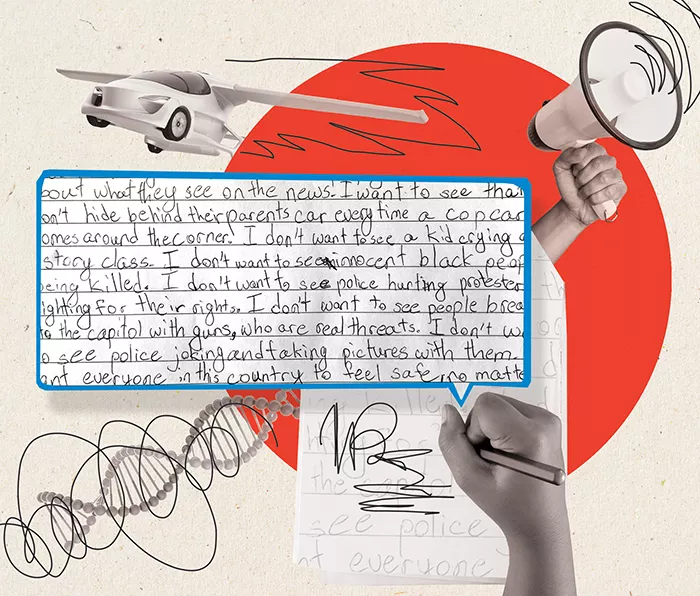 bout what they see on the news. I want to see tha
on't hide behind their parents car every time a cop car
omes around the corner. I don't want to see a kid crying
story class. I don't want to see innocent black peop
eing killed. I don't want to see police hurting protester
ighting for their rights. I don't want to see people brea
to the capitol with guns, who are real threats. I don't w
o see police joking and taking pictures with them.
nt everyone in this country to feel safe, no matte
the
see police
nt everyone